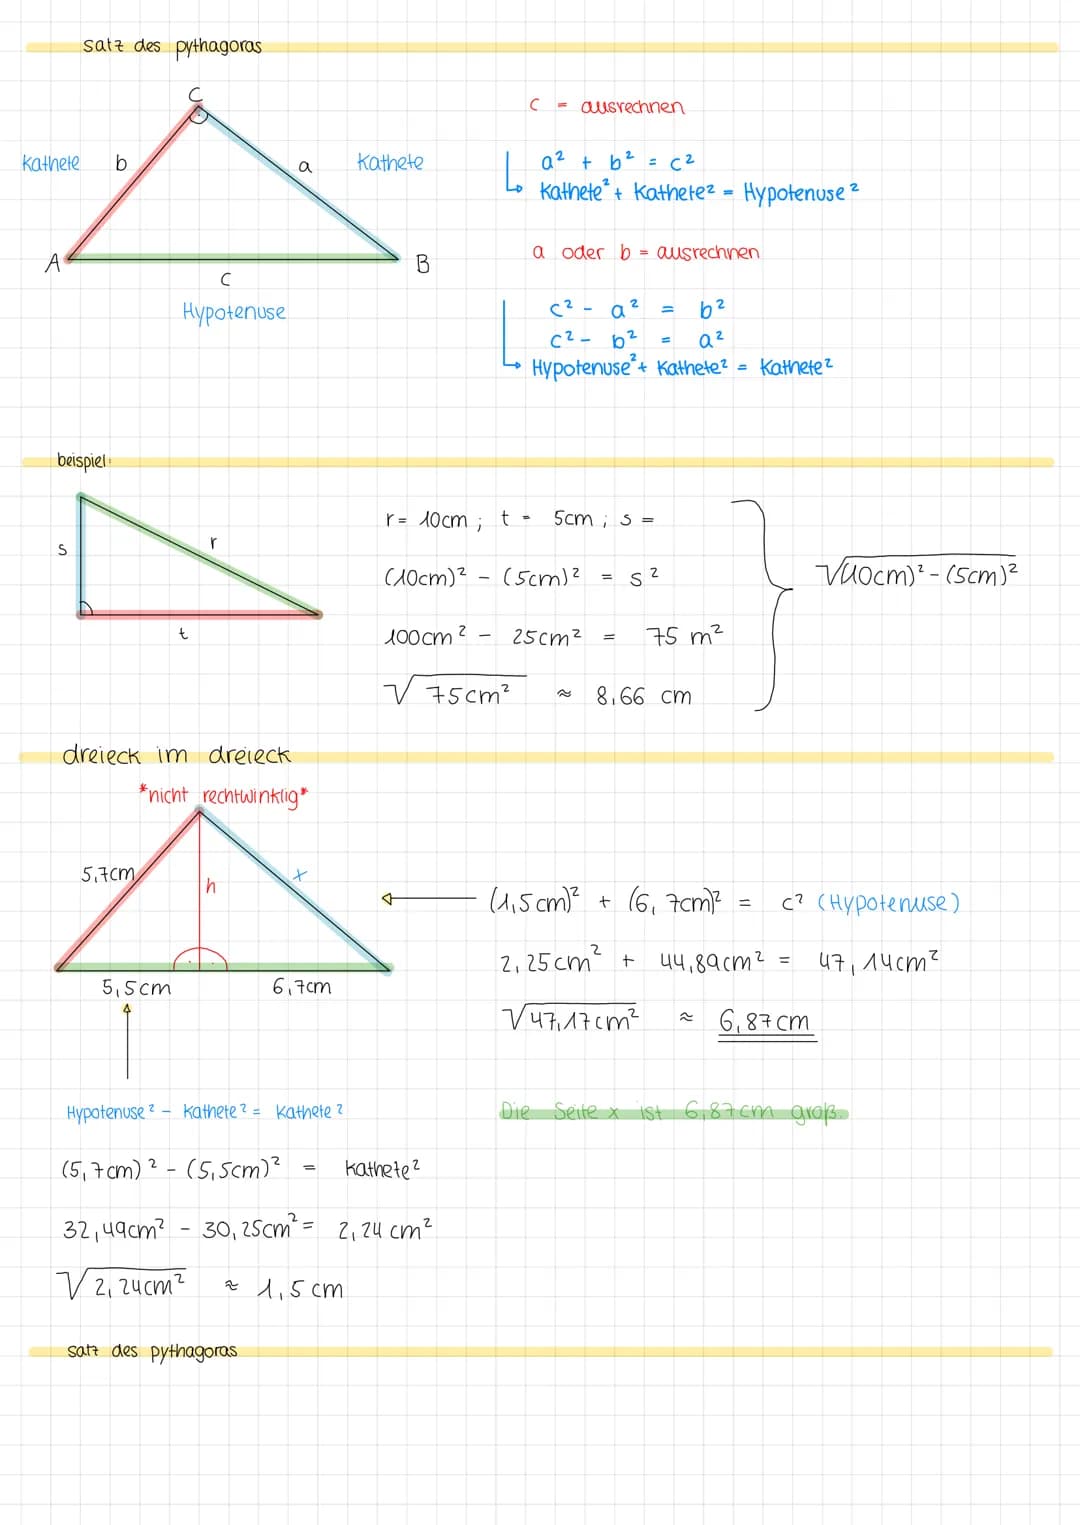 satz des pythagoras
C
c = ausrechnen
Kathete b
a Kathete
a² + b² = c²
Kathete² + Kathete² = Hypotenuse²
A
B
c
Hypotenuse
a oder b = ausrechnen
c² - a² = b²
c² - b² = a²
Hypotenuse² + Kathete² = Kathete²
beispiel:
s
r
t
r = 10cm ; t = 5cm ; s =
(10cm)² - (5cm)² = s²
100cm² - 25cm² = 75 m²
√75cm² ≈ 8,66 cm
√(10cm)² - (5cm)²
dreieck im dreieck
*nicht rechtwinklig*
5,7cm
h
x
5,5cm
6,7cm
(1,5cm)² + (6,7cm)² = c² (Hypotenuse)
2,25cm² + 44,89cm² = 47,14cm²
√47,17cm² ≈ 6,87cm
Die Seite x ist 6,87cm groß.
Hypotenuse² - Kathete² = Kathete²
(5,7cm)² - (5,5cm)² = Kathete²
32,49cm² - 30,25cm² = 2,24 cm²
√2,24cm² ≈ 1,5cm
satz des pythagoras